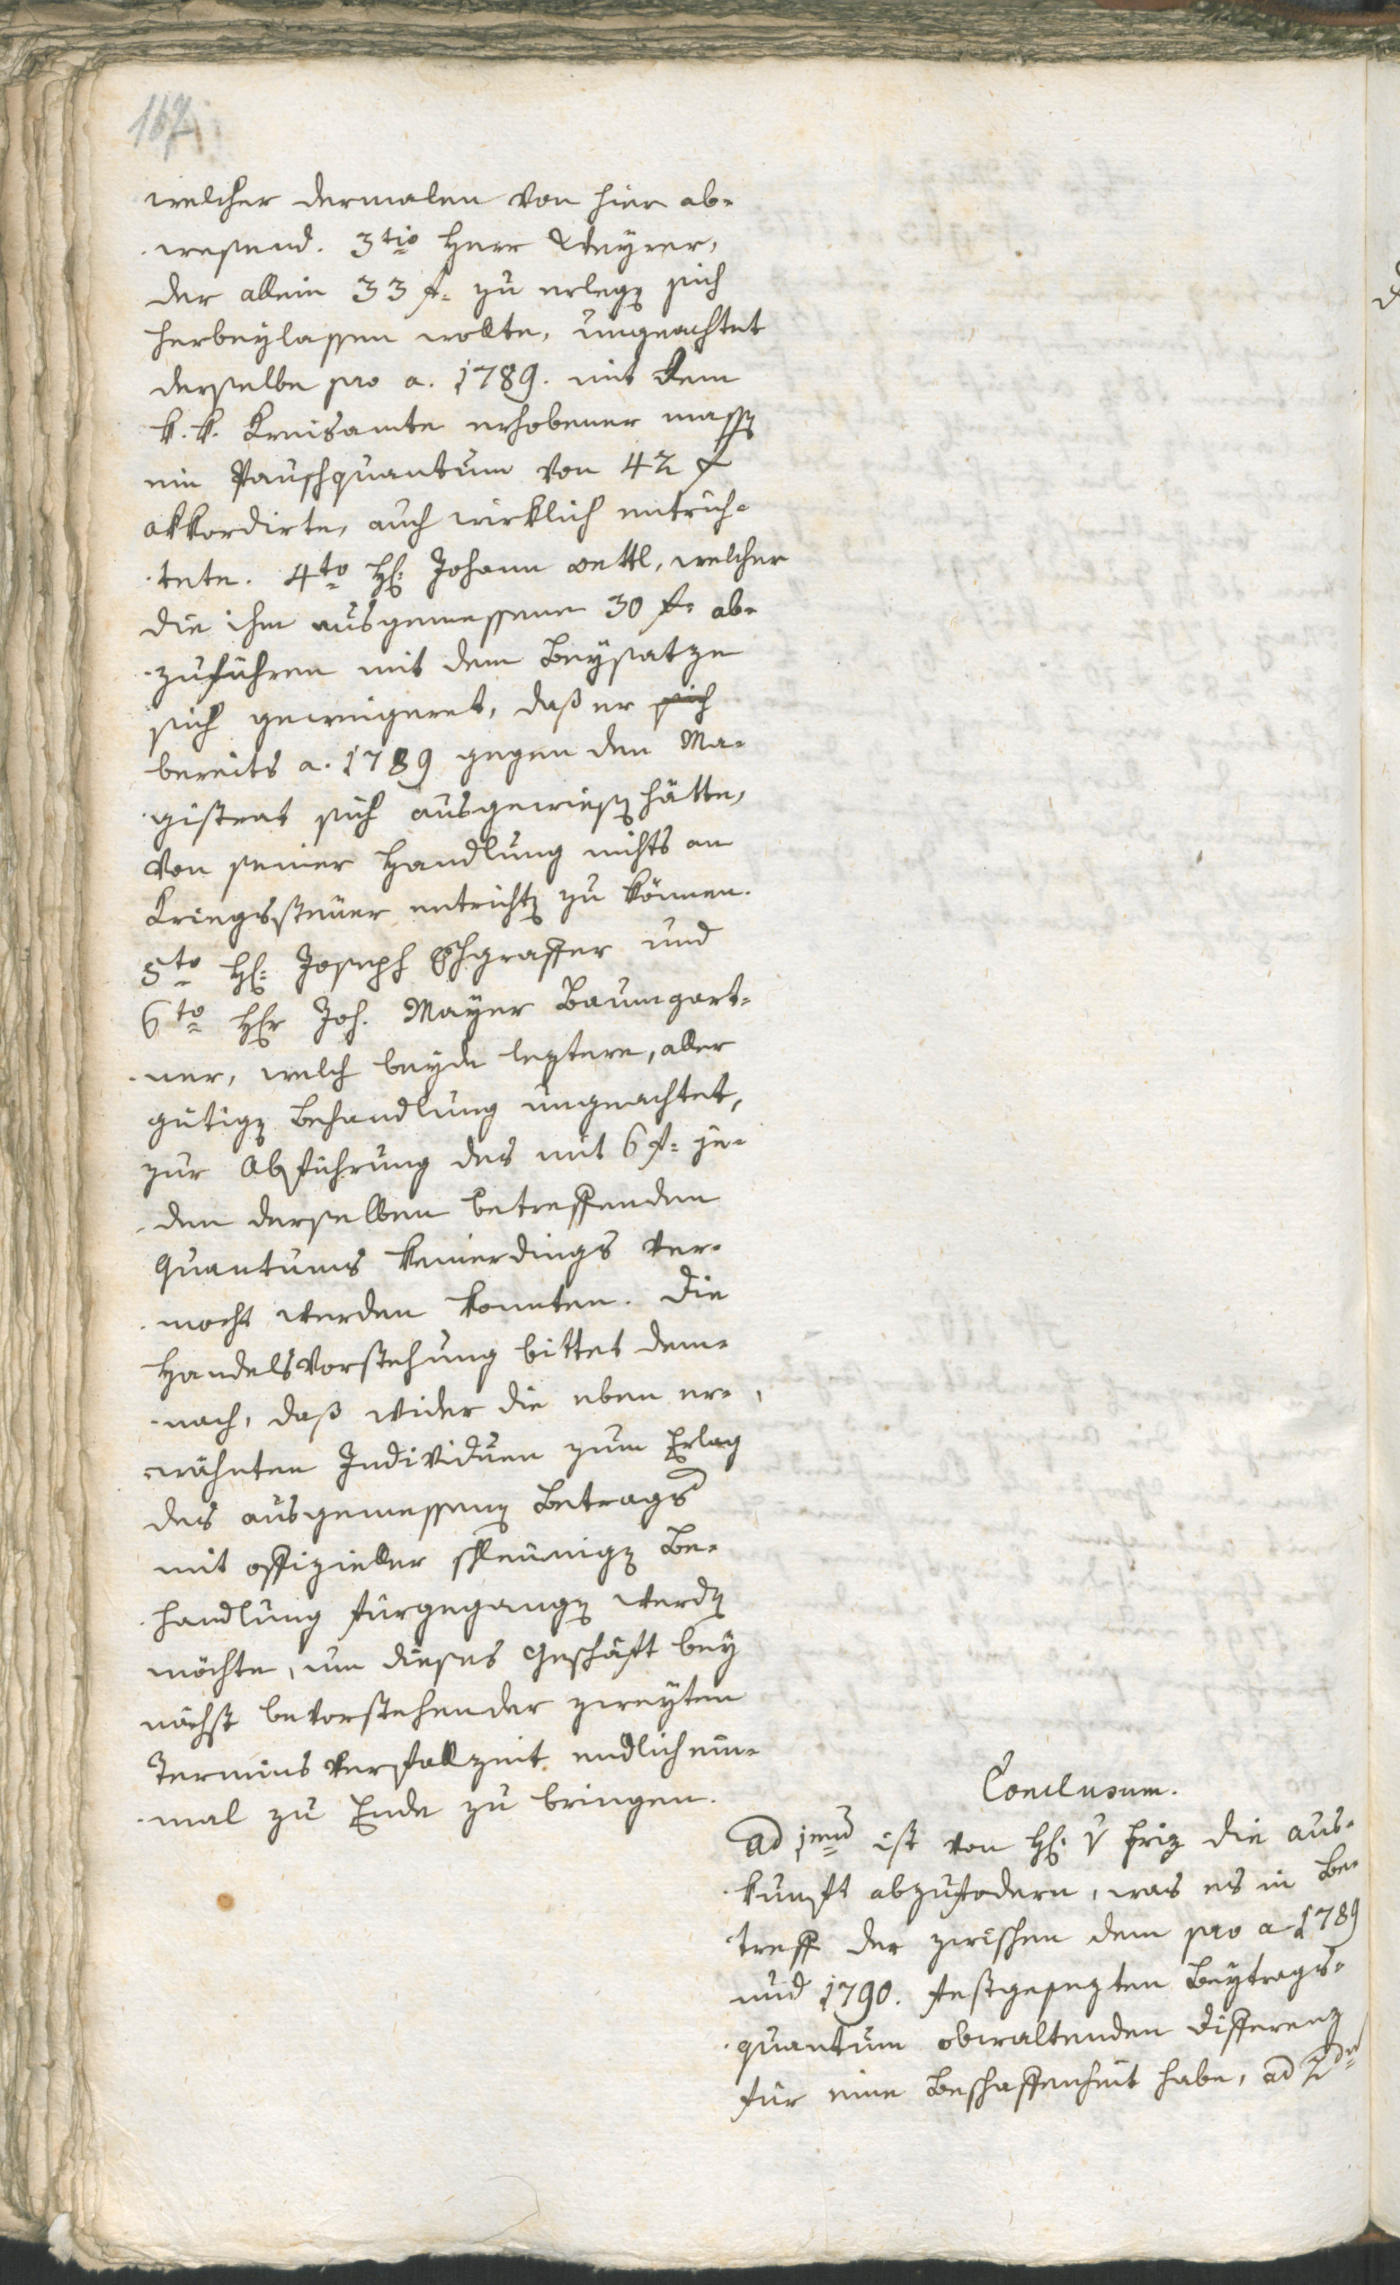 167
welcher dermalen von hier ab-
wesend. 3tio Herr Weyrer,
der allein 33 f: zu erlegen sich
herbeylassen wollte, ungeachtet
derselbe pro a. 1789. mit dem
k. k. Kreisamte erhobener massen
ein Pauschquantum von 42 f
akkordirte, auch wirklich entrich-
tete. 4to H: Johann Oettl, welcher
die ihm ausgemessene 30 f: ab-
zuführen mit dem Beysatze
sich geweigeret, daß er sich
bereits a. 1789 gegen den Ma-
gistrat sich ausgewiesen hätte,
von seiner Handlung nichts an
Kriegssteuer entrichten zu können.
5to H: Joseph Tschgraffer und
6to Hr Joh. Mayer Baumgart-
ner, welch beyde leztere, aller
gütigen Behandlung ungeachtet,
zur Abführung des mit 6 f: je-
den derselben betreffenden
Quantums keinerdings ver-
mocht werden konnten. Die
Handelsvorstehung bittet dem-
nach, daß wider die eben er-
wähnten Individuen zum Erlag
des ausgemessenen Betrags
mit offizieller schleunigen Be-
handlung fürgegangen werden
möchte, um dieses Geschäft bey
nächst bevorstehender zweyten
Termins Verfallzeit endlich ein-
mal zu Ende zu bringen.
Conclusum.
Ad 1mum ist von H: v Friz die Aus-
kunft abzufodern, was es in Be-
treff der zwischen dem pro a 1789
und 1790. festgesezten Beytrags-
quantum obwaltenden Differenz
für eine Beschaffenheit habe, ad 2dum